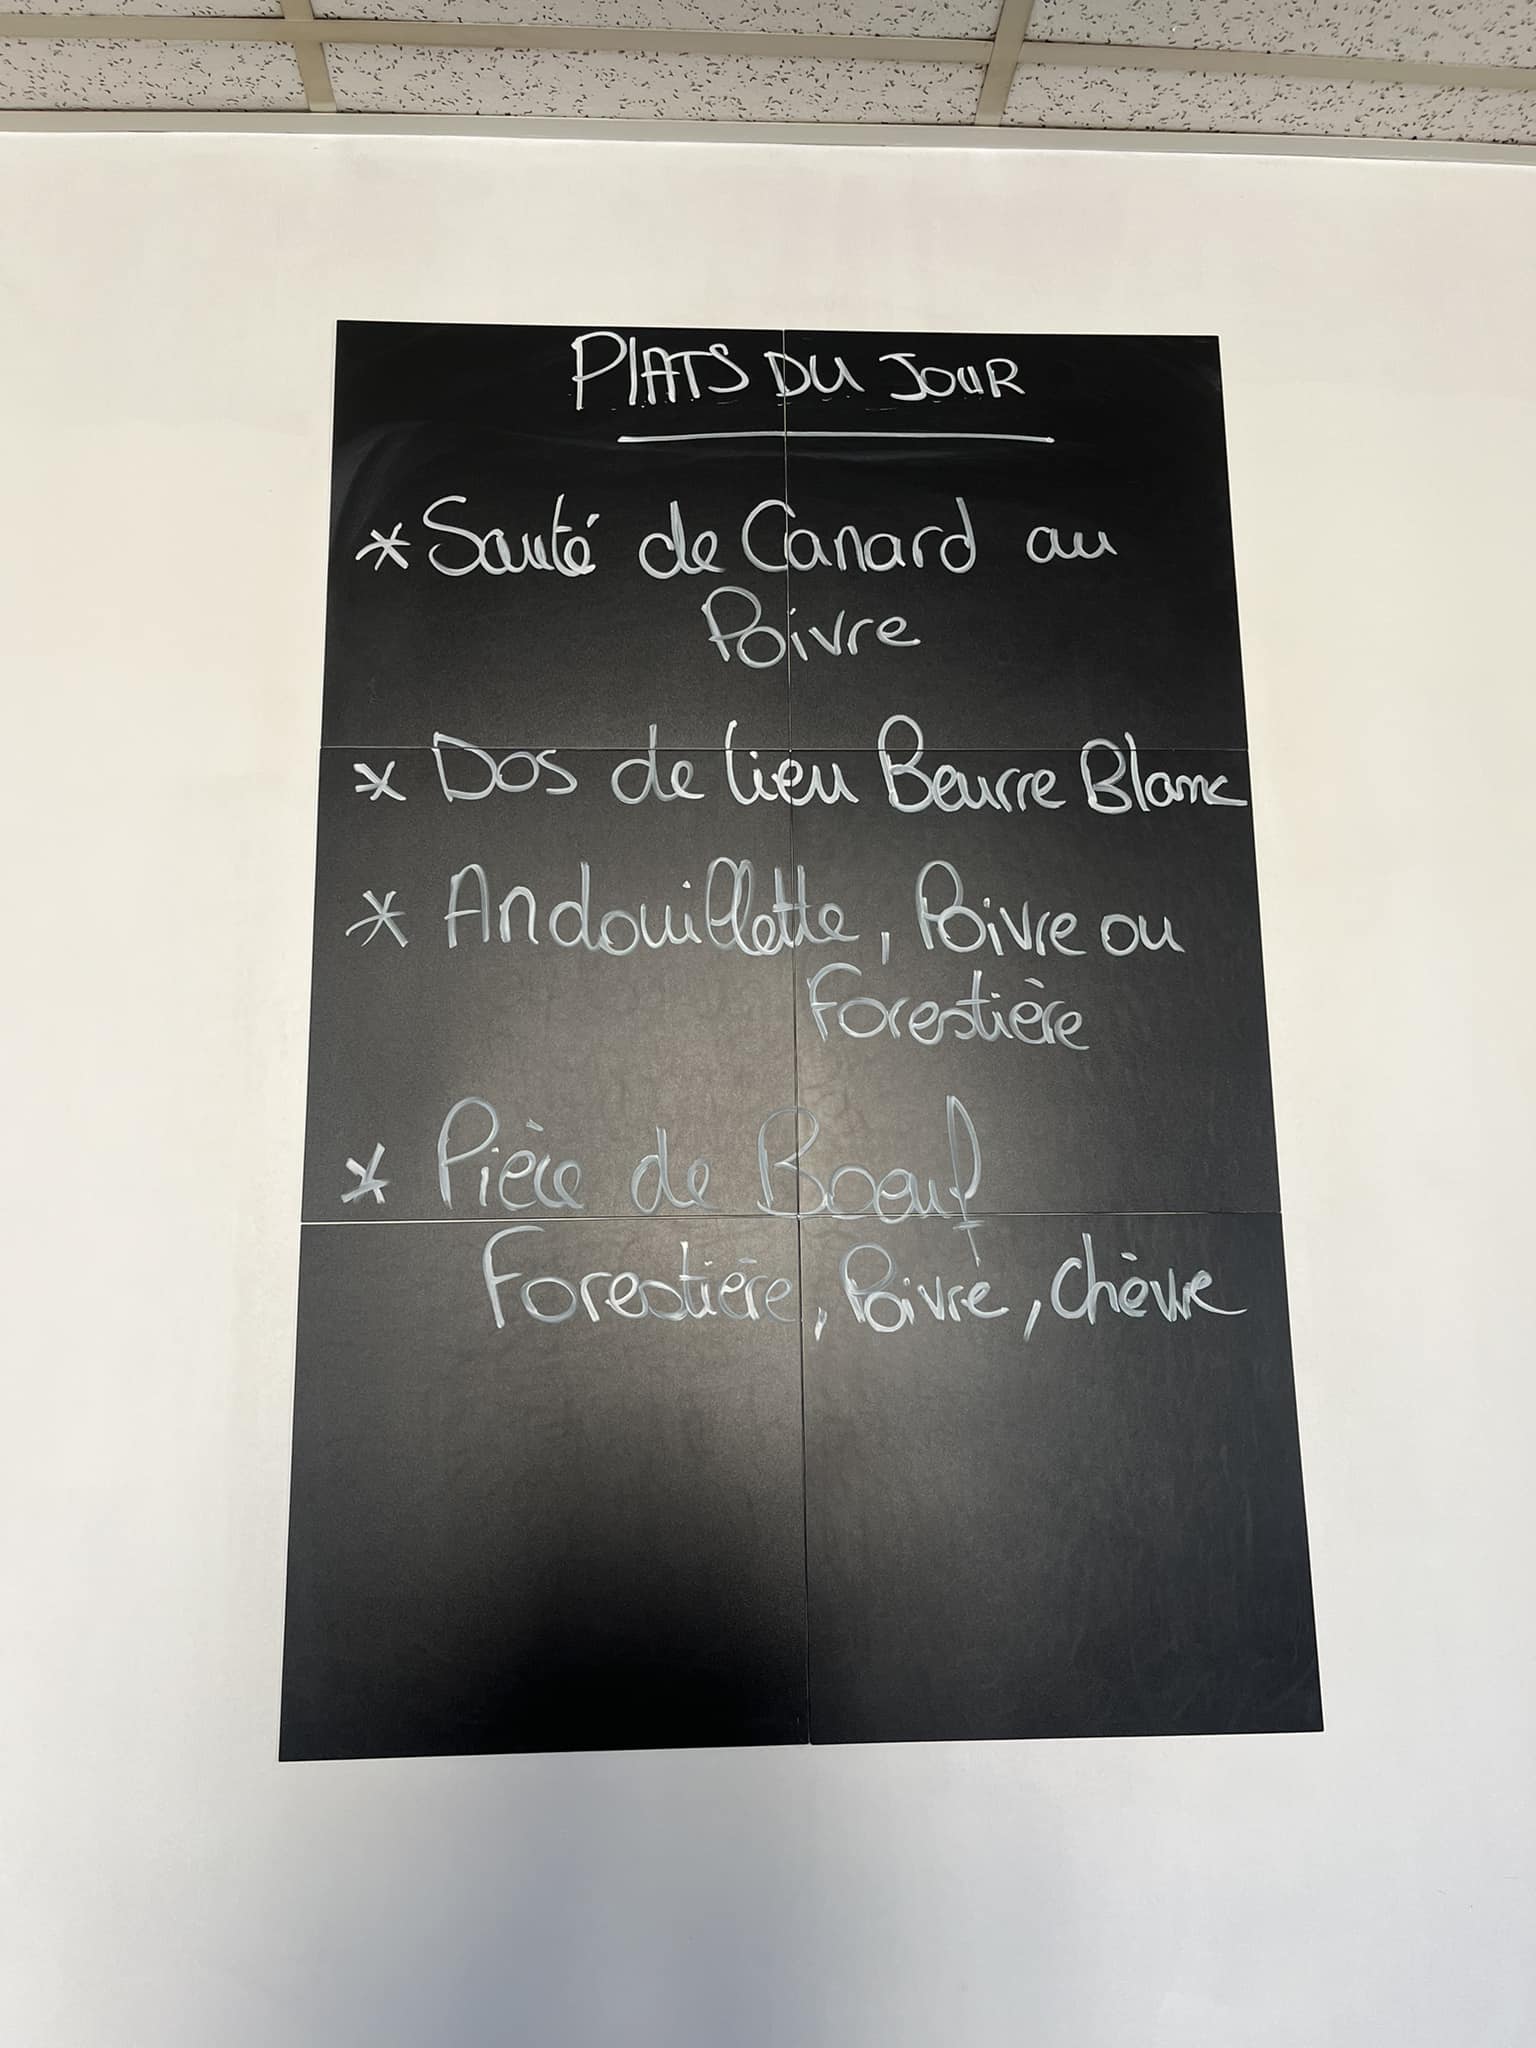 PlATS DU JOUR
* Sauté de Canard au
Poivre
* Dos de lieu Beurre Blanc
* Andouillette, Poivre ou
Forestière
* Pièce de Boeuf
Forestière, Poivre, Chèvre